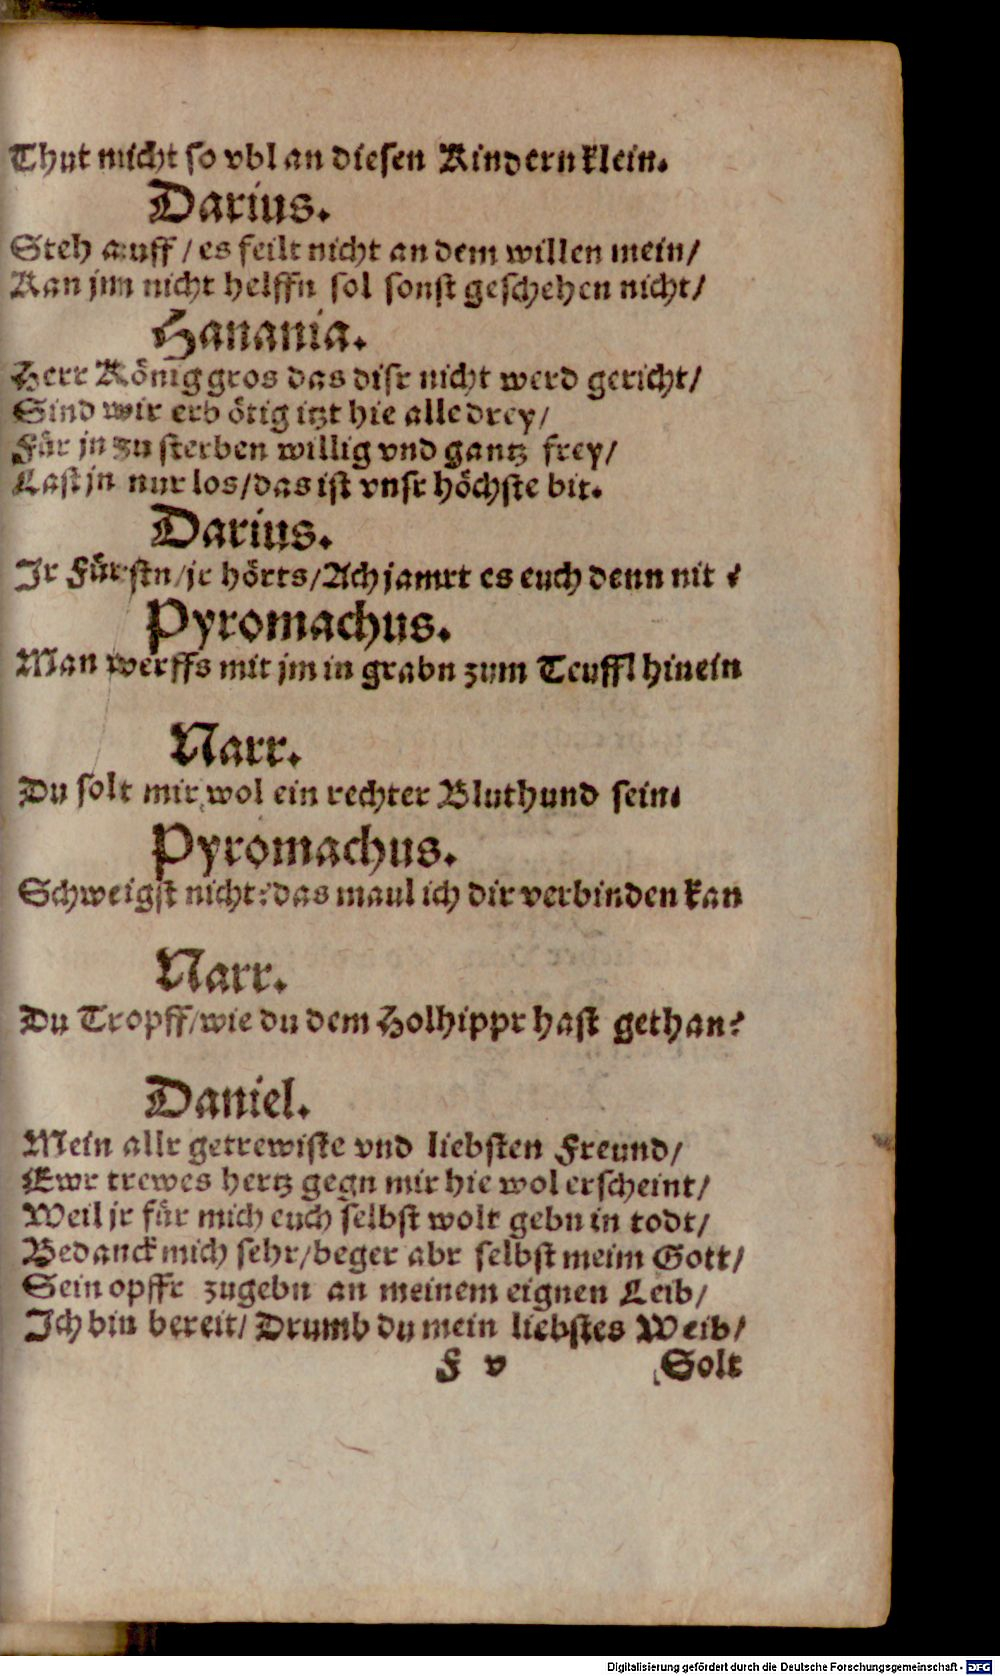 Thut nicht so vbl an diesen Kindern klein.
Darius.
Steh auff / es feilt nicht an dem willen mein/
Kan jm nicht helffn sol sonst geschehen nicht/
Hanania.
Herr König gros das disr nicht werd gericht/
Sind wir erbötig itzt hie alle drey/
Für jn zu sterben willig vnd gantz frey/
Last jn nur los/das ist vnsr höchste bit.
Darius.
Jr Fürstn/jr hörts/Ach jamrt es euch denn nit ?
Pyromachus.
Man werffs mit jm in grabn zum Teuffl hinein
Narr.
Du solt mir wol ein rechter Bluthund sein.
Pyromachus.
Schweigst nicht?das maul ich dir verbinden kan
Narr.
Du Tropff/wie du dem Holhippr hast gethan?
Daniel.
Mein allr getrewiste vnd liebsten Freund/
Ewr trewes hertz gegn mir hie wol erscheint/
Weil jr für mich euch selbst wolt gebn in todt/
Bedanck mich sehr/beger abr selbst meim Gott/
Sein opffr zugebn an meinem eignen Leib/
Ich bin bereit/ Drumb du mein liebstes Weib/
F v Solt
Digitalisierung gefördert durch die Deutsche Forschungsgemeinschaft - DFG